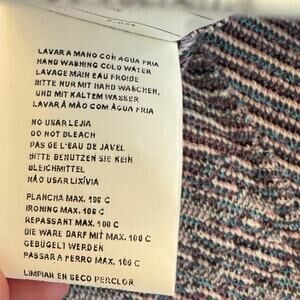 LAVAR A MANO CON AGUA FRIA
HAND WASHING COLD WATER
LAVAGE MAIN EAU FROIDE
BITTE NUR MIT HAND WASCHEN,
UND MIT KALTEM WASSER
LAVAR À MÃO COM ÁGUA FRIA
NO USAR LEJIA
DO NOT BLEACH
PAS DE L'EAU DE JAVEL
BITTE BENUTZEN SIE KEIN
BLEICHMITTEL
NÃO USAR LIXÍVIA
PLANCHA MAX. 100 C
IRONING MAX. 100 C
REPASSANT MAX. 100 C
DIE WARE DARF MIT MAX. 100 C
GEBÜGELT WERDEN
PASSAR A FERRO MAX. 100 C
LIMPIAR EN SECO PERCLOR